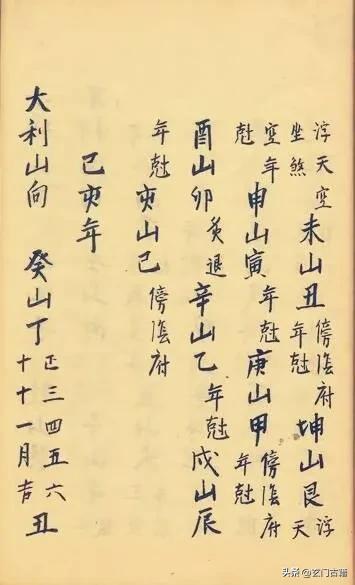 浮天空未山丑傍陰府坤山艮浮
坐煞年尅天
空年申山寅年尅庚山甲傍陰府
尅年尅
酉山卯炙退辛山乙年尅戌山辰
年尅亥山巳傍陰府
己亥年
大利山向 癸山丁正三四五六丑
十十一月吉
头条@玄门古籍